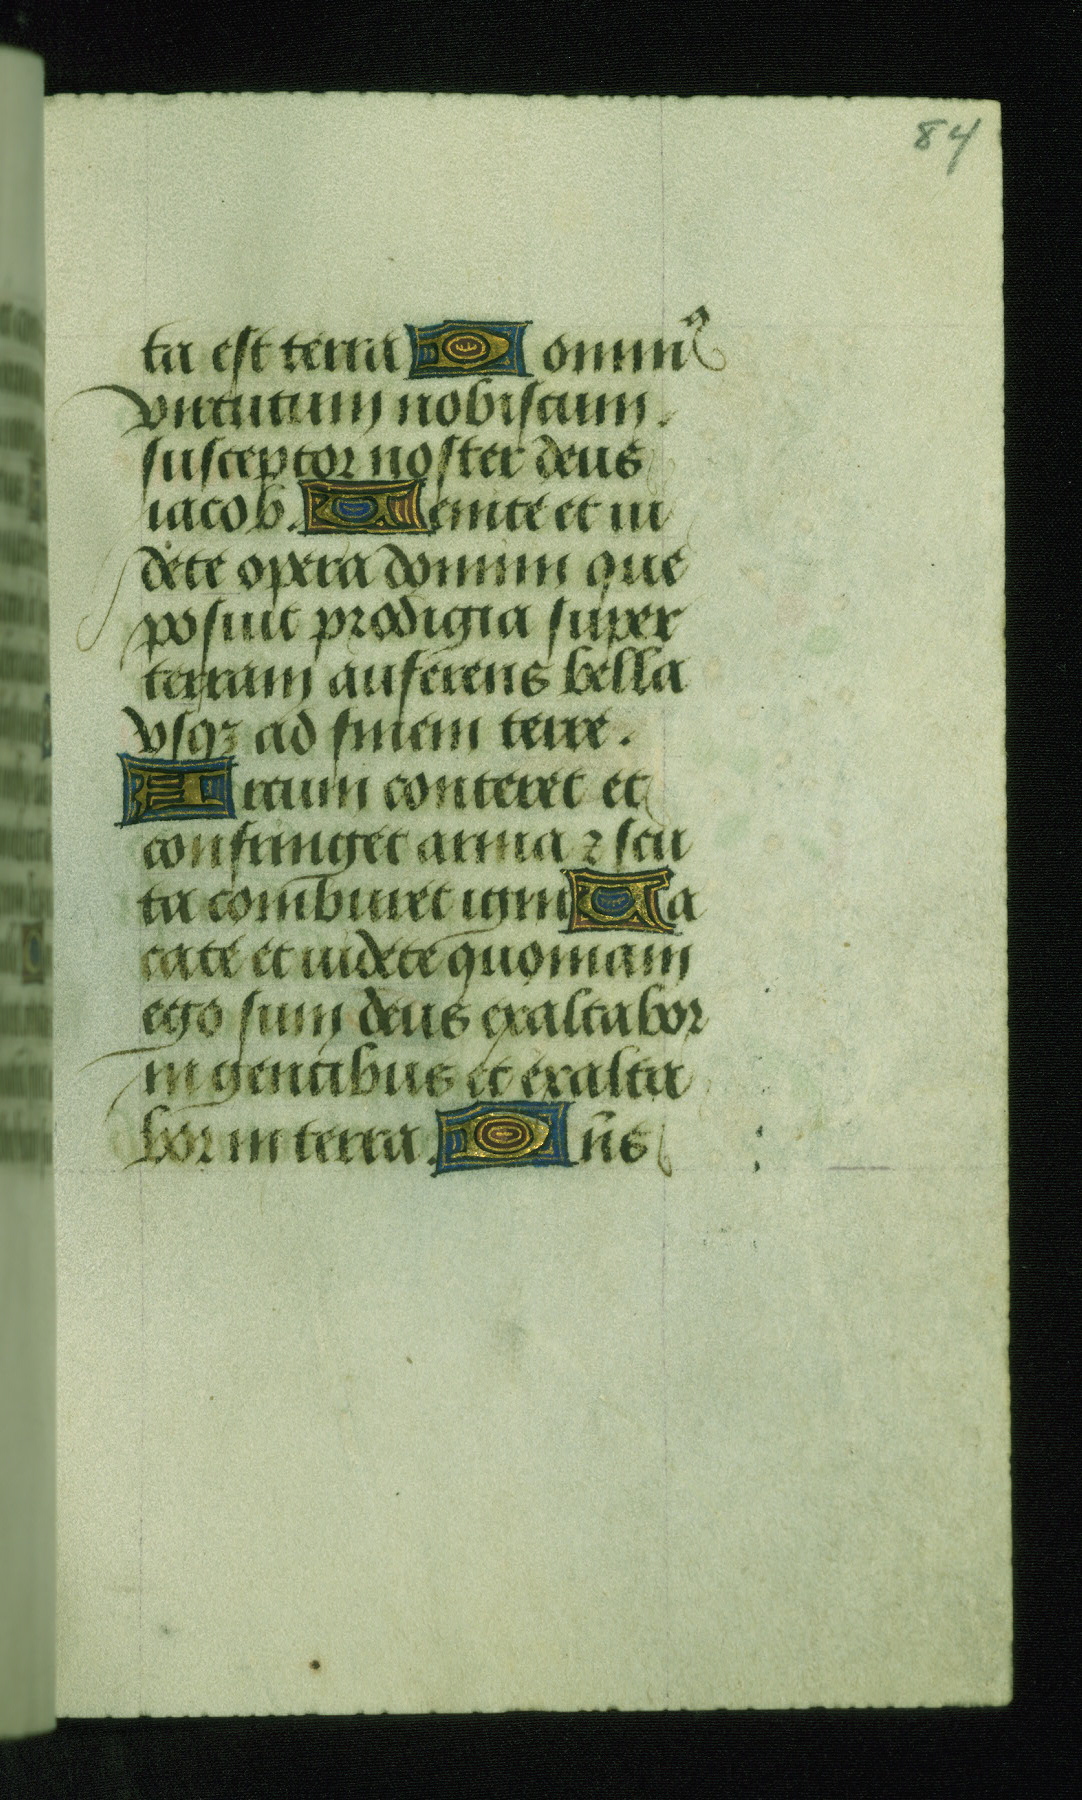 84
ta est terra Domin⁹
virtutum nobiscum.
susceptor noster deus
iacob. Venite et ui
dete opera domini que
posuit prodigia super
terram auferens bella
vsqꝫ ad finem terre.
Arcum conteret et
confringet arma ⁊ scu
ta comburet igni Va
cate et uidete quoniam
ego sum deus exaltabor
in gentibus et exalta
bor in terra. Dn̄s